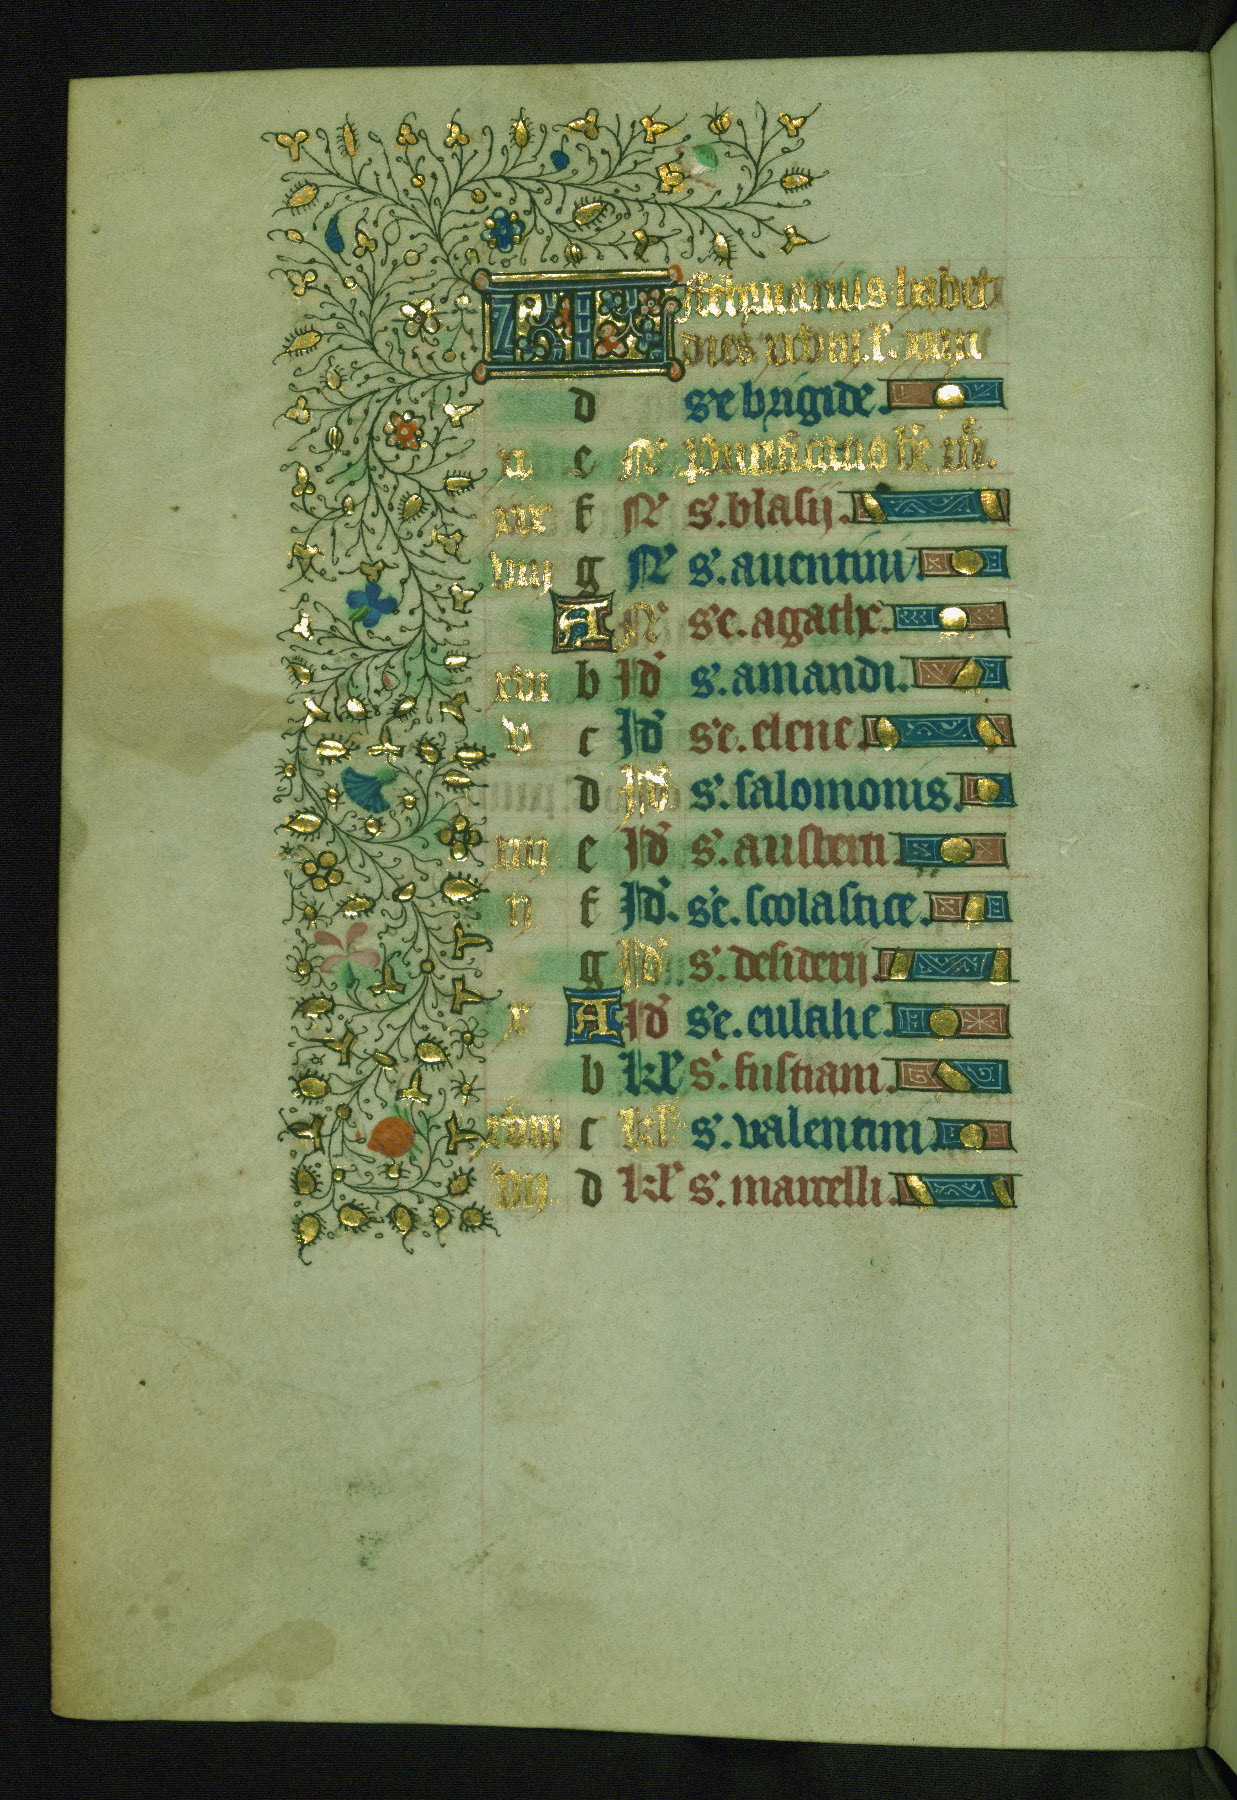 KL februarius habet
dies xxviij. l. xxix
d s'e brigide.
xi e N' purificatio be m'.
xix f N' s'. blasij.
viij g N' s'. auentini
A N' s'e. agathe.
xvi b Id' s'. amandi.
v c Id' s'e. elene.
d Id' s'. salomonis.
e Id' s'. austberti.
ij f Id'. s'e. scolastice.
g Id' s'. desiderij.
x A Id' s'e. eulalie.
b kl' s'. fustiani.
xviij c kl' s'. valentini
vij d kl' s'. marcelli.